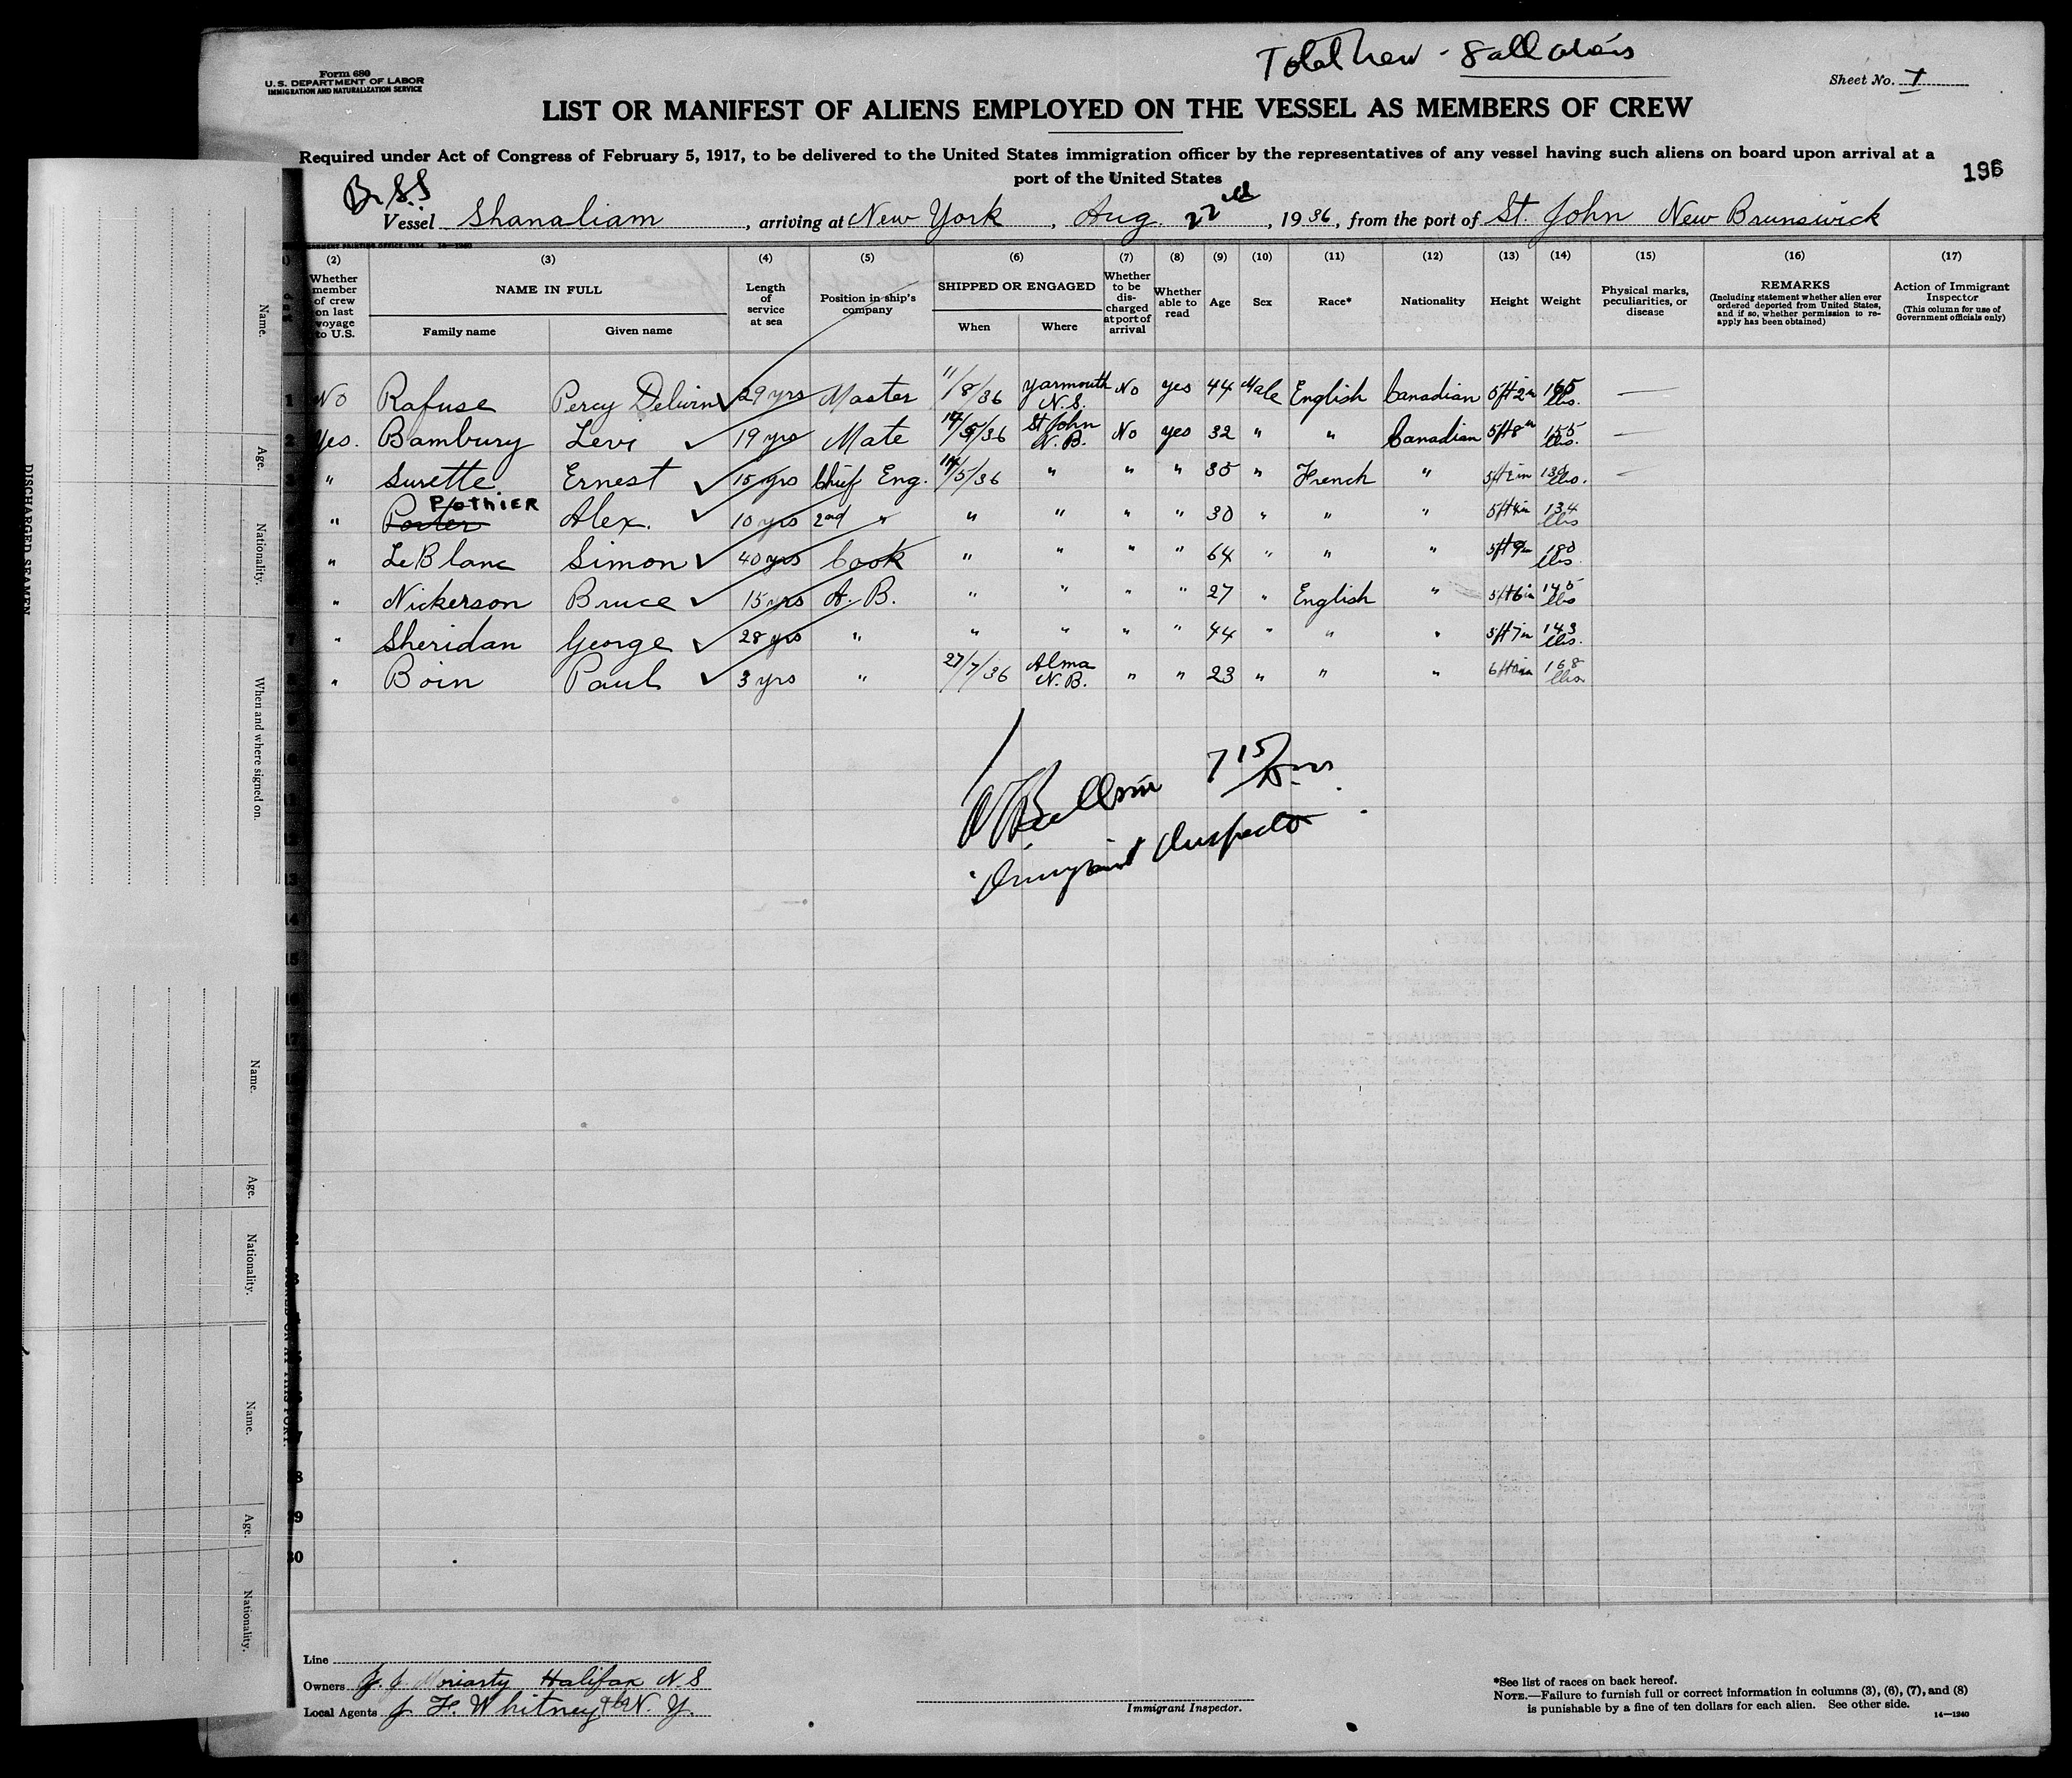 Total Crew - 8 all aliens
Form 680
U.S. DEPARTMENT OF LABOR
IMMIGRATION AND NATURALIZATION SERVICE
Sheet No. 1
LIST OR MANIFEST OF ALIENS EMPLOYED ON THE VESSEL AS MEMBERS OF CREW
Required under Act of Congress of February 5, 1917, to be delivered to the United States immigration officer by the representatives of any vessel having such aliens on board upon arrival at a
port of the United States
196
Br. S.S.
Vessel Shanaliam, arriving at New York, Aug. 22nd, 1936, from the port of St. John New Brunswick
(2) (3) (4) (5) (6) (7) (8) (9) (10) (11) (12) (13) (14) (15) (16) (17)
Whether member of crew on last voyage to U.S. NAME IN FULL Family name Given name Length of service at sea Position in ship's company SHIPPED OR ENGAGED When Where Whether to be discharged at port of arrival Whether able to read Age Sex Race* Nationality Height Weight Physical marks, peculiarities, or disease REMARKS (Including statement whether alien ever ordered deported from United States, and if so, whether permission to reapply has been obtained) Action of Immigrant Inspector (This column for use of Government officials only)
1 No Rafuse Percy Delwin 29 yrs Master 11/8/36 Yarmouth N.S. No yes 44 Male English Canadian 5ft 2in 165 lbs. —
2 Yes. Bambury Levi 19 yrs Mate 14/5/36 St John N.B. No yes 32 " " Canadian 5ft 8in 155 lbs. —
3 " Surette Ernest 15 yrs Chief Eng. 14/5/36 " " " 35 " French " 5ft 2in 135 lbs. —
" Porter POTHIER Alex. 10 yrs 2nd " " " " " 30 " " " 5ft 4in 134 lbs
" LeBlanc Simon 40 yrs Cook " " " " 64 " " " 5ft 9in 180 lbs.
" Nickerson Bruce 15 yrs A.B. " " " " 27 " English " 5ft 6in 145 lbs
7 " Sheridan George 28 yrs " " " " " 44 " " " 5ft 7in 143 lbs.
" Boin Paul 3 yrs " 27/7/36 Alma N.B. " " 23 " " " 6ft 168 lbs
7 15
Immigrant Inspector
13
14
15
16
17
28
29
30
Line
Owners J. J. Moriarty Halifax N.S
Local Agents J. F. Whitney N.Y.
Immigrant Inspector.
*See list of races on back hereof.
NOTE.—Failure to furnish full or correct information in columns (3), (6), (7), and (8)
is punishable by a fine of ten dollars for each alien. See other side.
14—1240
DISCHARGED SEAMEN
Name.
Age.
Nationality.
When and where signed on.
Name.
Age.
Nationality.
Name.
Age.
Nationality.